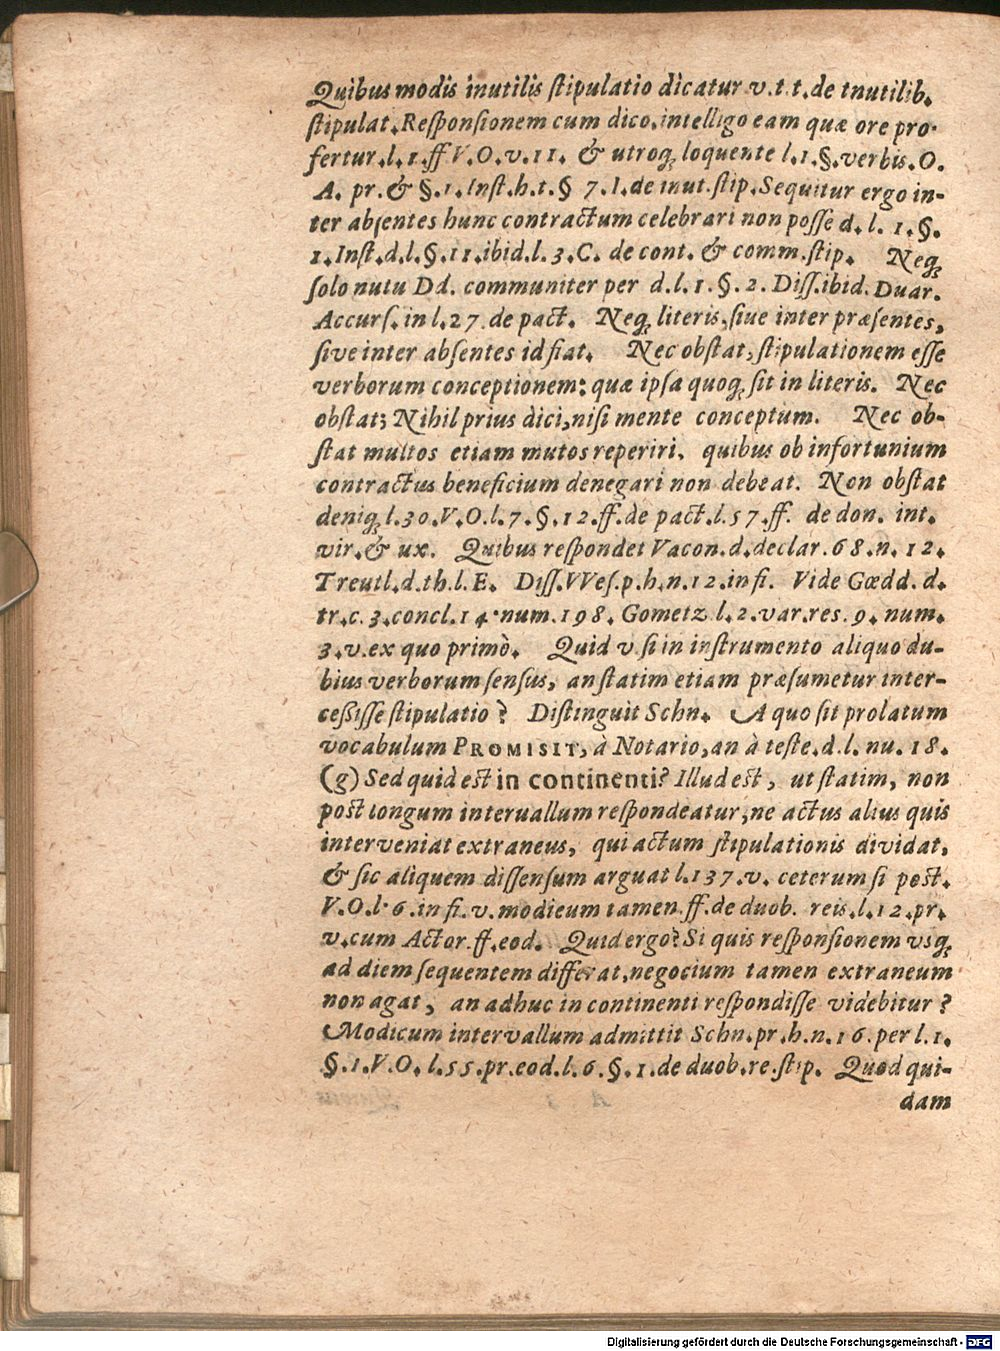 Quibus modis inutilis ſtipulatio dicatur v.t.t.de inutilib.
ſtipulat. Reſponſionem cum dico, intelligo eam quæ ore pro-
fertur.l.1.ff V.O.v.11. & utroq; loquente l.1.§.verbis.O.
A. pr.& §.1.Inſt.h.t.§ 7.I.de inut.ſtip. Sequitur ergo in-
ter abſentes hunc contractum celebrari non poſſe d.l. 1.§.
1.Inſt.d.l.§.11.ibid.l.3.C. de cont. & comm.ſtip. Neq;
ſolo nutu Dd. communiter per d.l.1.§.2. Diſſ.ibid. Duar.
Accurſ. in l.27 de pact. Neq; literis, ſiue inter præſentes,
ſive inter abſentes id fiat. Nec obſtat, ſtipulationem eſſe
verborum conceptionem: quæ ipſa quoq; ſit in literis. Nec
obſtat; Nihil prius dici, niſi mente conceptum. Nec ob-
ſtat multos etiam mutos reperiri, quibus ob infortunium
contractus beneficium denegari non debeat. Non obſtat
deniq; l.30.V.O.l.7.§.12.ff.de pact.l.57.ff. de don. int.
vir.& ux. Quibus reſpondet Vacon.d.declar.68.n.12.
Treutl.d.th.l.E. Diſſ.VVeſ.p.h.n.12.in fi. Vide Gœdd. d.
tr.c.3.concl.14.num.198. Gometz l.2.var.res.9.num.
3.v.ex quo primò. Quid v.ſi in inſtrumento aliquo du-
bius verborum ſenſus, an ſtatim etiam præſumetur inter-
ceßiſſe ſtipulatio? Diſtinguit Schn. A quo ſit prolatum
vocabulum PROMISIT, à Notario, an à teſte.d.l.nu.18.
(g) Sed quid eſt in continenti? Illud eſt, ut ſtatim, non
poſt longum interuallum reſpondeatur, ne actus alius quis
interveniat extraneus, qui actum ſtipulationis dividat,
& ſic aliquem diſſenſum arguat l.137.v. ceterum ſi poſt.
V.O.l.6.in fi.v.modicum tamen.ff.de duob. reis.l.12.pr.
v.cum Actor.ff.eod. Quid ergo? Si quis reſponſionem vsq;
ad diem ſequentem differat, negocium tamen extraneum
non agat, an adhuc in continenti reſpondiſſe videbitur?
Modicum intervallum admittit Schn.pr.h.n.16.per l.1.
§.1.V.O.l.55.pr.eod.l.6.§.1.de duob.re.ſtip. Quod qui-
dam
Digitalisierung gefördert durch die Deutsche Forschungsgemeinschaft - DFG